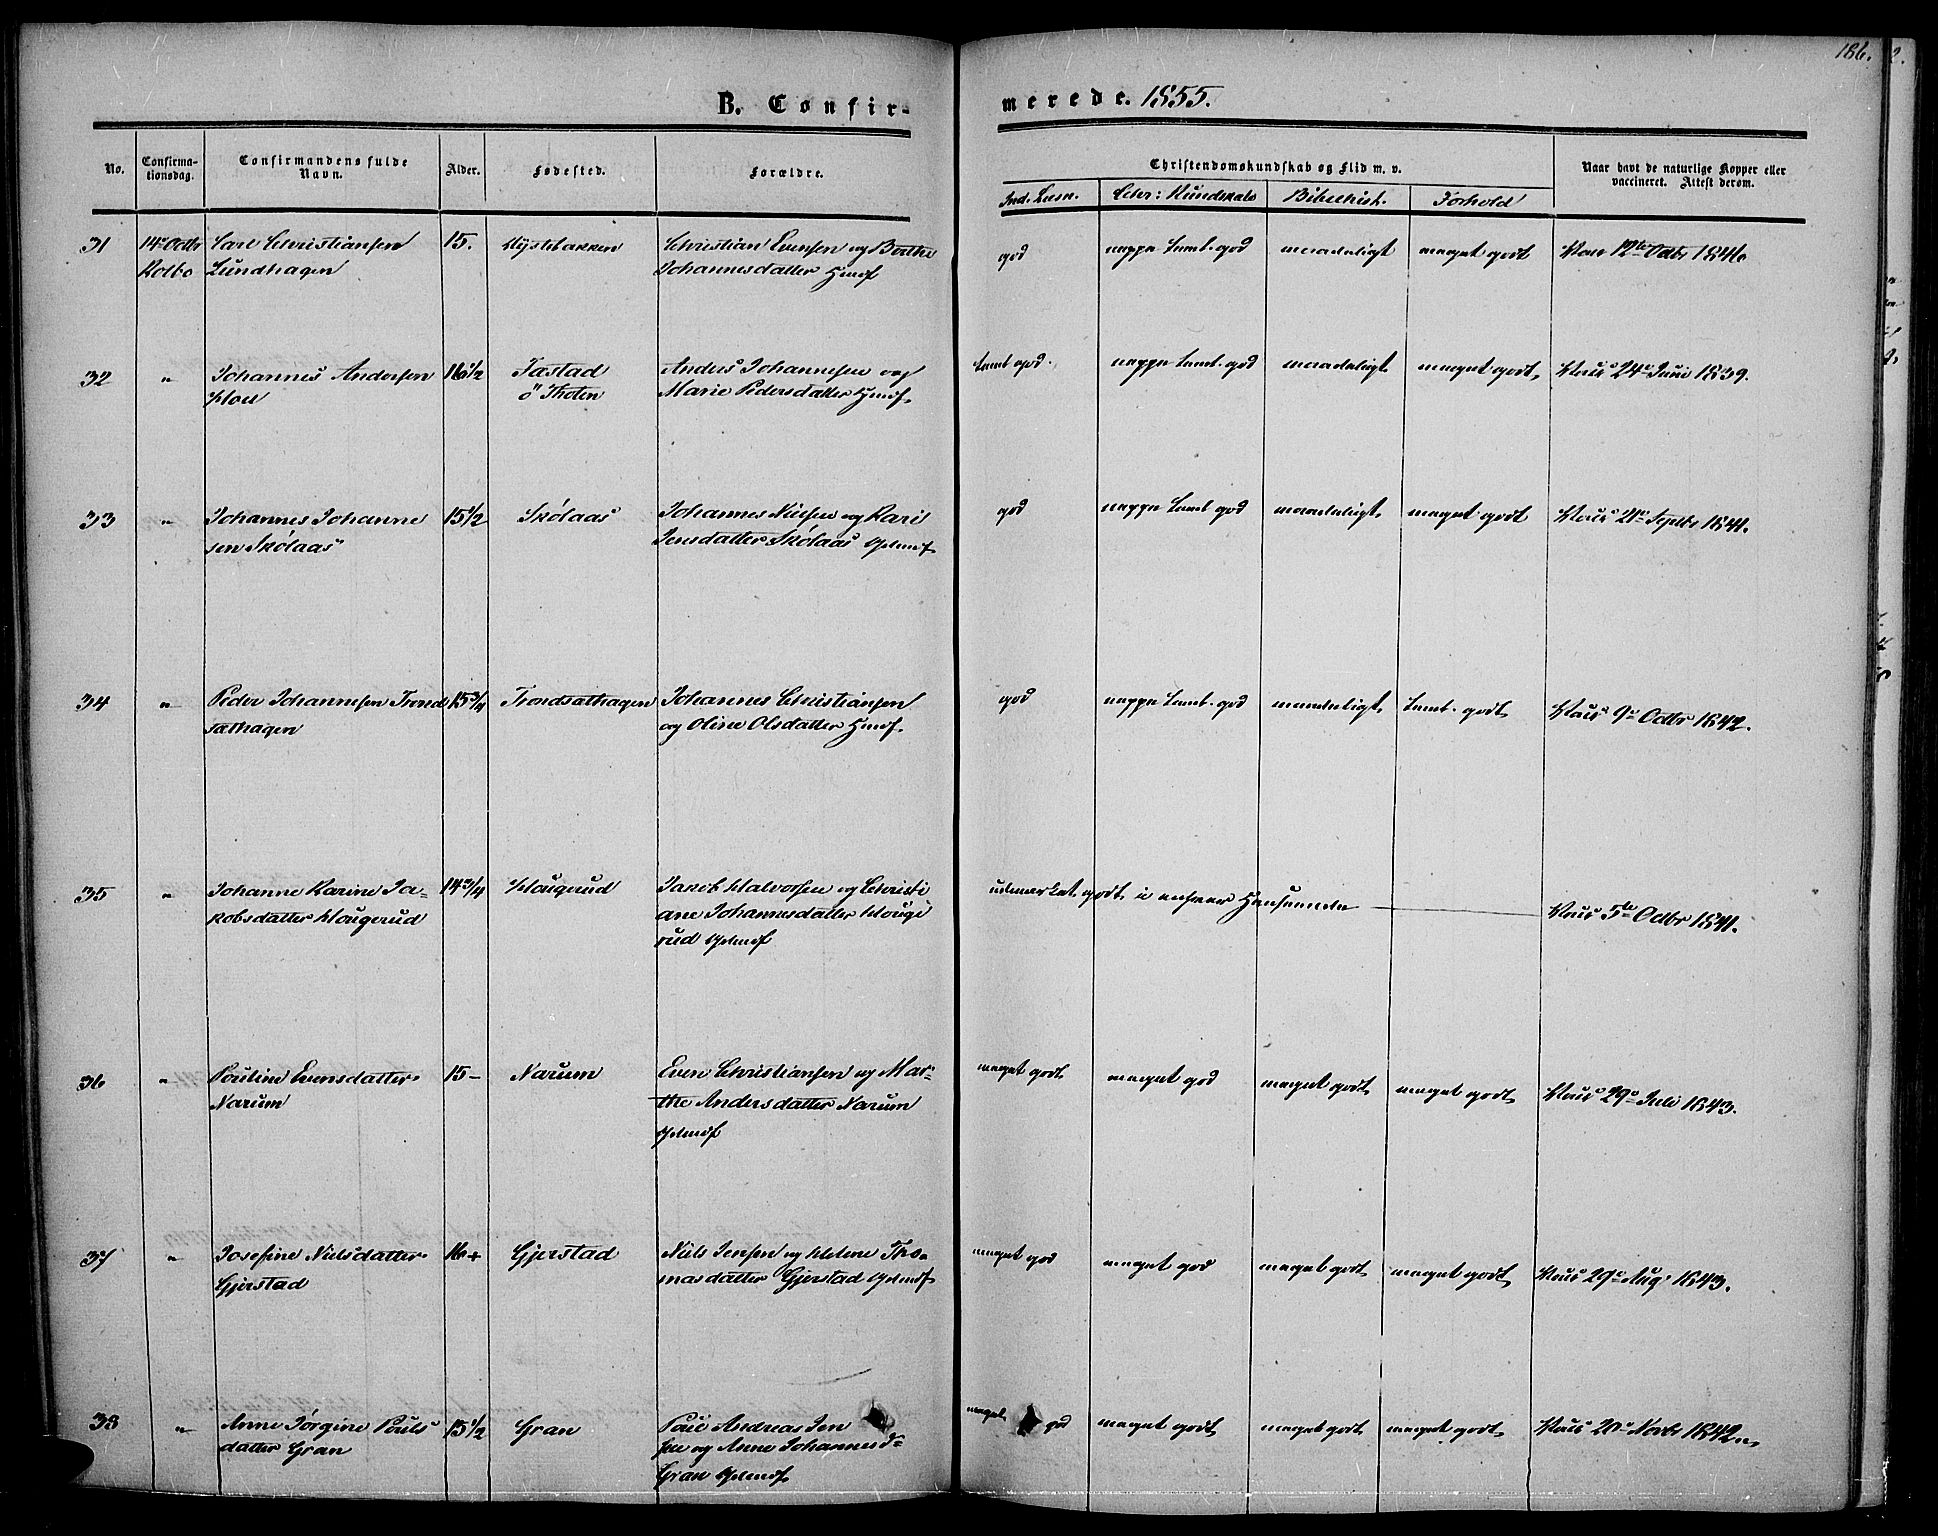 186.
B. Confir-
merede. 1855.
No.
Confirma-
tionsdag.
Confirmandens fulde
Navn.
Alder.
Fødested.
Forældre.
Christendomskundskab og Flid m. v.
Naar havt de naturlige Kopper eller
vaccineret. Attest derom.
Ind. Læsn.
Kundskab
Bibelhist.
Forhold
31
14de Octbr
Kolbo
Carl Christiansen
Lundhagen
15.
Christian Evensen og Berthe
Johannesdatter Hmdf
god
neppe Teml. god
maadeligt
meget godt
Vac. 12te Octbr 1846
32
"
Johannes Andersen
16 1/2
Fastad
ö Thoten
Anders Johannesen og
Marie Pedersdatter Hmdf.
Teml god.
neppe Teml. god
maadeligt
meget godt,
Vac. 24de Juni 1839.
33
"
Johannes Johanne
sen Skölaas
15 1/2
Skölaas
Johannes Nilsen og Kari
Jensdatter Skölaas Gdmdf
god
neppe Teml god
maadeligt,
meget godt
Vac. 21de Septbr 1841.
34
"
Peder Johannesen Trond
sathagen
15 3/4
Trondsathagen
Johannes Christiansen
og Oline Olsdatter Hmdf.
god
neppe Teml. god
maadeligt,
Teml. godt,
Vac. 9de Octbr 1842.
35
"
Johanne Karine Ja-
kobsdatter Hougerud
14 3/4
Hougerud
Jakob Halvorsen og Christi
ane Johannesdatter Houge
rud Gdmdf
udmærket godt i enhver Henseende
Vac. 5te Octbr 1841.
36
"
Pouline Evensdatter
Narum
15-
Narum
Even Christiansen og Mar-
the Andersdatter Narum
Gdmdf
meget godt,
meget god
meget godt,
meget godt,
Vac. 29de Juli 1843.
37
"
Josefine Nielsdatter
Gjerstad
16+
Gjerstad
Niels Jensen og Helene Tho-
masdatter Gjerstad Gdmdf
meget god
meget god
meget godt
meget godt,
Vac. 29de Aug. 1843.
38
"
Anne Jörgine Pouls
datter Gran
15 1/2
Gran
Andreas Jen
sen og Anne Johannesd=
Gran Gdmdf.
meget god
meget godt,
meget godt
meget godt,
Vac. 20de Novbr 1842.